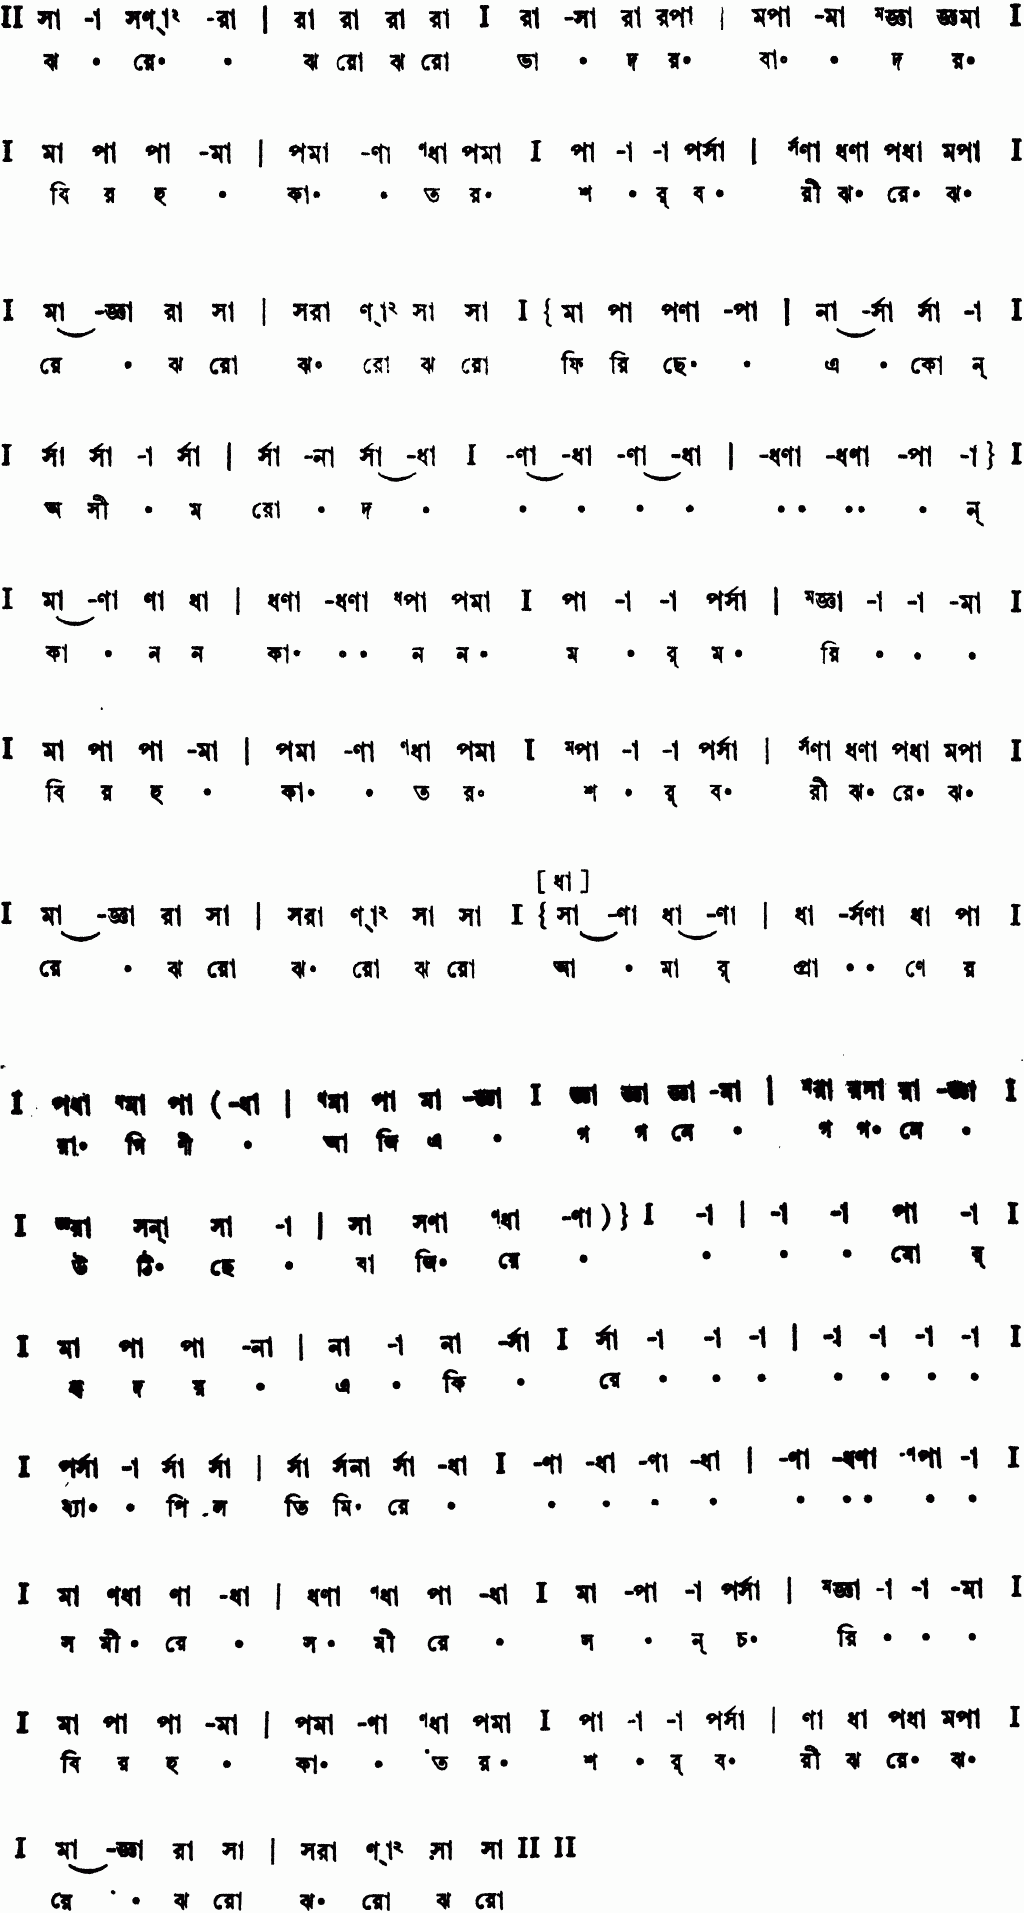 II সা -া সণ্‌া২ -রা | রা রা রা রা I রা -সা রা রপা | মপা -মা মজ্ঞা জ্ঞমা I
ঝ • রে• • ঝ রো ঝ রো ভা • দ র• বা• • দ র•
I মা পা পা -মা | পমা -ণা ণধা পমা I পা -া -া পর্সা | র্সণা ধণা পধা মপা I
বি র হ • কা• • ত র• শ • র্ ব • রী ঝ• রে• ঝ•
I মা -জ্ঞা রা সা | সরা ণ্‌া২ সা সা I { মা পা পণা -পা | না -র্সা র্সা -া I
রে • ঝ রো ঝ• রো ঝ রো ফি রি ছে• • এ • কো ন্
I র্সা র্সা -া র্সা | র্সা -না র্সা -ধা I -ণা -ধা -ণা -ধা | -ধণা -ধণা -পা -া } I
অ সী • ম রো • দ • • • • • • • • • • ন্
I মা -ণা ণা ধা | ধণা -ধণা ধপা পমা I পা -া -া পর্সা | মজ্ঞা -া -া -মা I
কা • ন ন কা• • • ন ন• ম • র্ ম • রি • • •
I মা পা পা -মা | পমা -ণা ণধা পমা I মপা -া -া পর্সা | র্সণা ধণা পধা মপা I
বি র হ • কা• • ত র• শ • র্ ব• রী ঝ• রে• ঝ•
[ ধা ]
I মা -জ্ঞা রা সা | সরা ণ্‌া২ সা সা I { সা -ণা ধা -ণা | ধা -র্সণা ধা পা I
রে • ঝ রো ঝ• রো ঝ রো আ • মা র্ প্রা • • ণে র
I পধা ণমা পা ( -ধা | ণমা পা মা -জ্ঞা I জ্ঞা জ্ঞা জ্ঞা -মা | মরা রসা রা -জ্ঞা I
রা• গি ণী • আ জি এ • গ গ নে • গ গ• নে •
I জ্ঞরা সন্‌া সা -া | সা সণা ণধা -ণা ) } I -া | -া -া পা -া I
উ ঠি• ছে • বা জি• রে • • • • মো র্
I মা পা পা -না | না -া না -র্সা I র্সা -া -া -া | -া -া -া -া I
হৃ দ র • এ • কি • রে • • • • • • •
I পর্সা -া র্সা র্সা | র্সা র্সনা র্সা -ধা I -ণা -ধা -ণা -ধা | -ণা -ধণা -ণপা -া I
ব্যা• • পি ল তি মি• রে • • • • • • • • • •
I মা ণধা ণা -ধা | ধণা ণধা পা -ধা I মা -পা -া পর্সা | মজ্ঞা -া -া -মা I
স মী• রে • স • মী রে • স • ন্ চ• রি • • •
I মা পা পা -মা | পমা -ণা ণধা পমা I পা -া -া পর্সা | ণা ধা পধা মপা I
বি র হ • কা• • ত র• শ • র্ ব• রী ঝ রে• ঝ•
I মা -জ্ঞা রা সা | সরা ণ্‌া২ সা সা II II
রে • ঝ রো ঝ• রো ঝ রো